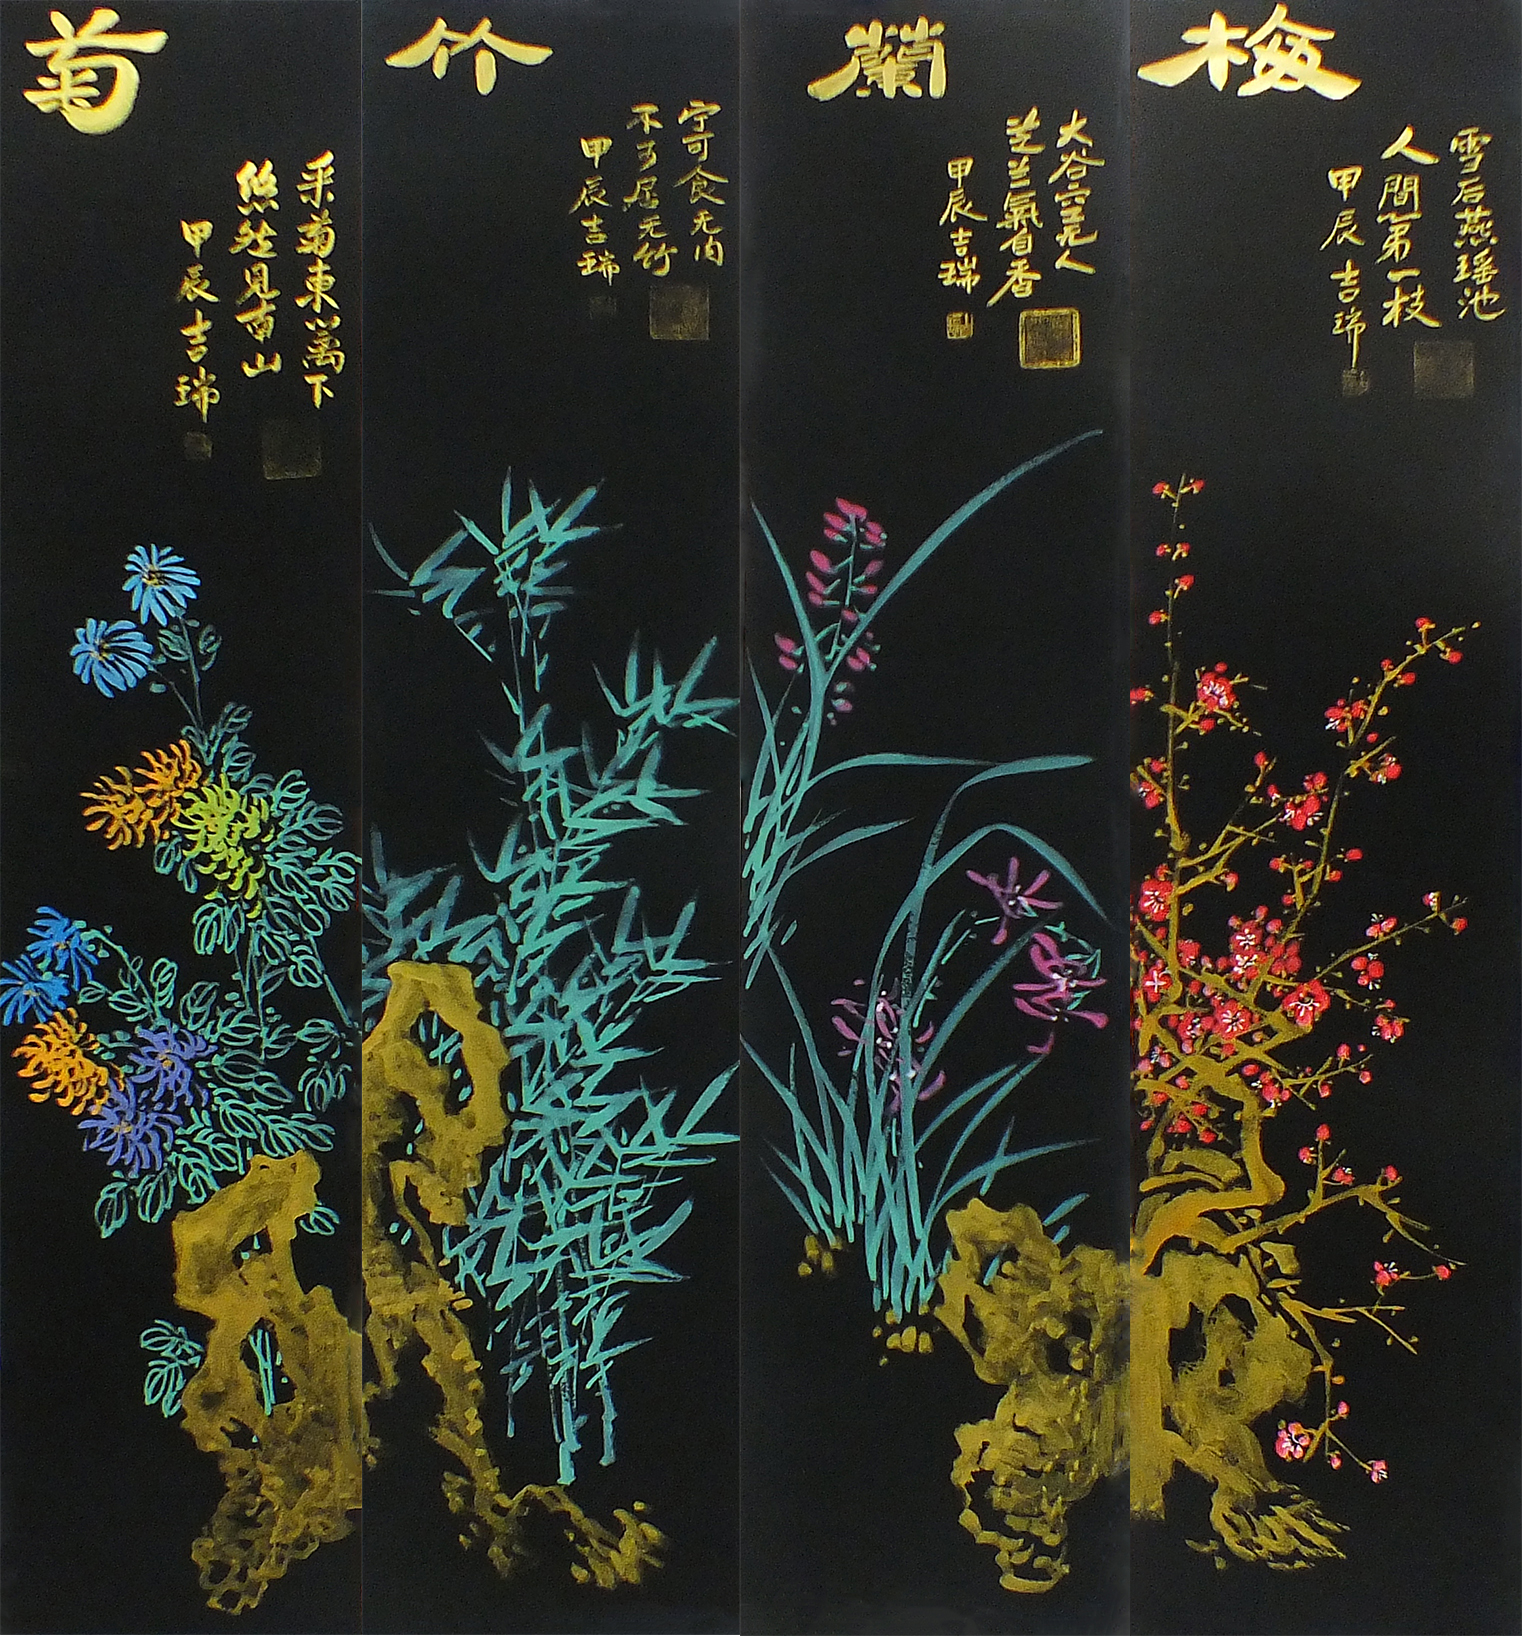 梅
雪后燕瑶池
人間第一枝
甲辰吉瑞
蘭
大谷空无人
芝兰氣自香
甲辰吉瑞
竹
宁可食无肉
不可居无竹
甲辰吉瑞
菊
采菊東篱下
悠然見南山
甲辰吉瑞